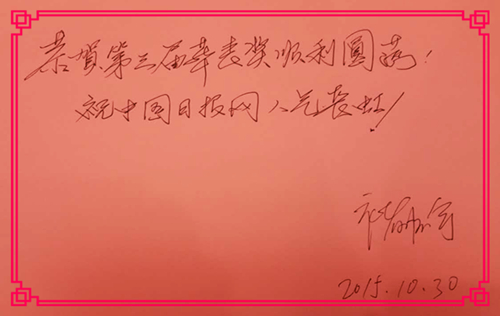 恭贺第三届华表奖顺利圆满！
祝中国日报网人气长虹！
2015.10.30